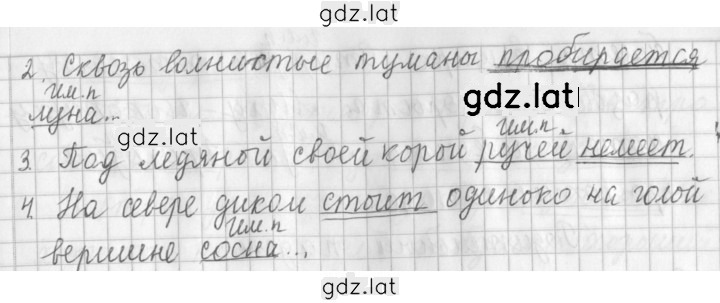 gdz.lat
2. Сквозь волнистые туманы пробирается
им.п
луна...
gdz.lat
gdz.lat
им.п
3. Под ледяной своей корой ручей немеет.
4. На севере диком стоит одиноко на голой
им.п
вершине сосна...
gdz.lat